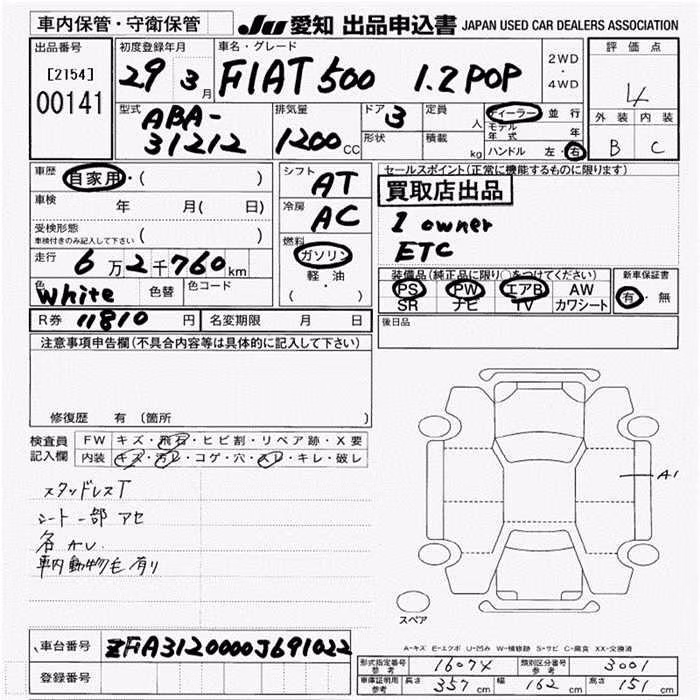 車内保管・守衛保管
JU 愛知 出品申込書 JAPAN USED CAR DEALERS ASSOCIATION
出品番号
[2154]
00141
初度登録年月
29 3月
車名・グレード
FIAT 500 1.2 POP
2WD
・
4WD
評価点
4
外装 内装
B C
型式
ABA-
31212
排気量
1200 CC
ドア 3
形状
定員 人
積載 kg
ディーラー 並行
モデル年式 年
ハンドル 左・右
車歴 自家用・( )
車検 年 月( 日)
受検形態
車検付きのみ記入して下さい ( )
走行 6万2千760km
色 White 色替 色コード
R券 11810 円 名変期限 月 日
シフト AT
冷房 AC
燃料
ガソリン
軽・油
( )
セールスポイント(正常に機能するものに限ります)
買取店出品
1 owner
ETC
装備品(純正品に限り○をつけてください)
PS PW エアB AW
SR ナビ TV カワシート
新車保証書
有・無
後日品
注意事項申告欄(不具合内容等は具体的に記入して下さい)
修復歴 有 (箇所 )
検査員記入欄
FW キズ・飛石・ヒビ割・リペア跡・X要
内装 キズ・汚レ・コゲ・穴・スレ・キレ・破レ
スタッドレスT
シート一部アセ
各AU.
車内動物毛有り
A1
スペア
A-キズ E-エクボ U-凹み W-補修跡 S-サビ C-腐食 XX-交換済
車台番号 ZFA3120000J691022
登録番号
形式指定番号参考 16074 類別区分番号参考 3001
車庫証明用参考 長さ 357cm 幅 162cm 高さ 151cm